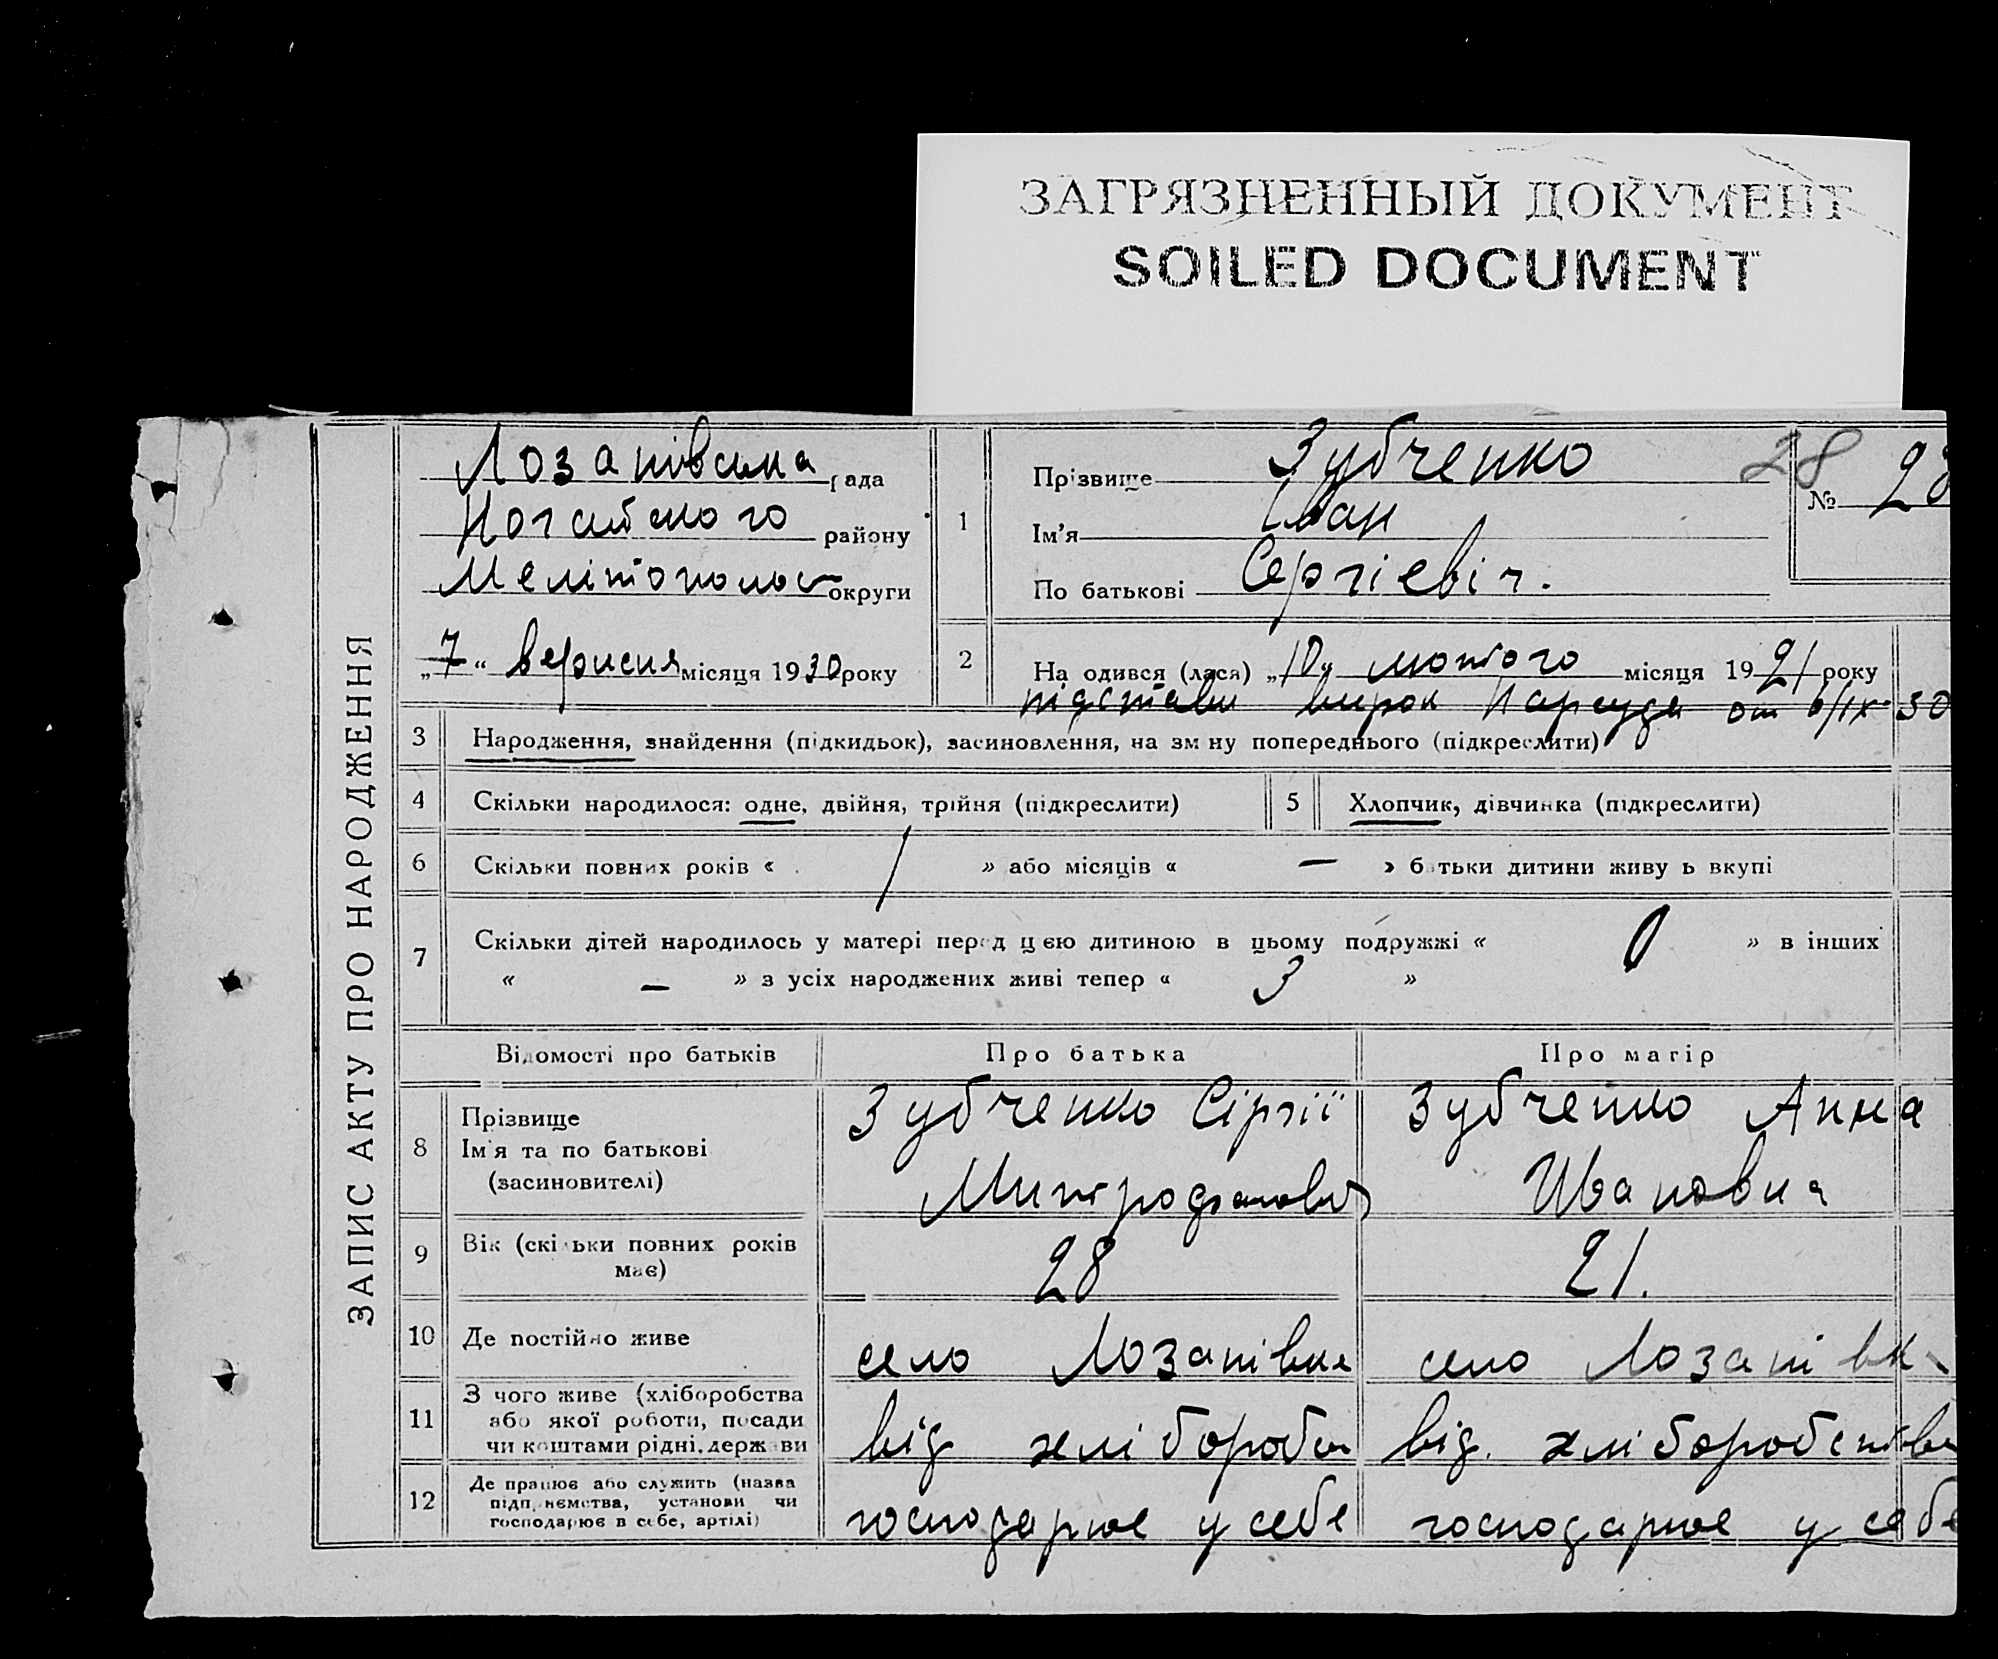 ЗАГРЯЗНЕННЫЙ ДОКУМЕНТ
SOILED DOCUMENT
ЗАПИС АКТУ ПРО НАРОДЖЕННЯ
Лозатівська рада
району
Мелітопольс округи
„7“ вересня місяця 1930 року
28
№ 28
1
Прізвище Зубченко
Ім'я Іван
По батькові Сергієвіч.
2
На одився (лася) „10„ лютого місяця 1921 року
підстави вирок Нарсуда от 6/IX-30
3 Народження, знайдення (підкидьок), засиновлення, на зм ну попереднього (підкреслити)
4 Скільки народилося: одне, двійня, трійня (підкреслити)
5 Хлопчик, дівчинка (підкреслити)
6 Скільки повних років « 1 » або місяців « — » б тьки дитини живу ь вкупі
7 Скільки дітей народилось у матері перед цєю дитиною в цьому подружжі « 0 » в інших
« — » з усіх народжених живі тепер « 3 »
Відомості про батьків Про батька Про матір
8 Прізвище
Ім'я та по батькові
(засиновителі)
Зубченко Сіргії
Митрофанович
Зубченко Анна
Ивановна
9 Вік (скільки повних років
має)
28
21.
10 Де постійно живе
село Лозатівка
село Лозатівк
11 З чого живе (хліборобства
або якої роботи, посади
чи коштами рідні, держави
від хлібороб
від. хліборобства
12 Де працює або служить (назва
підприємства, установи чи
господарює в себе, артілі)
господарює у себе
господарює у себе